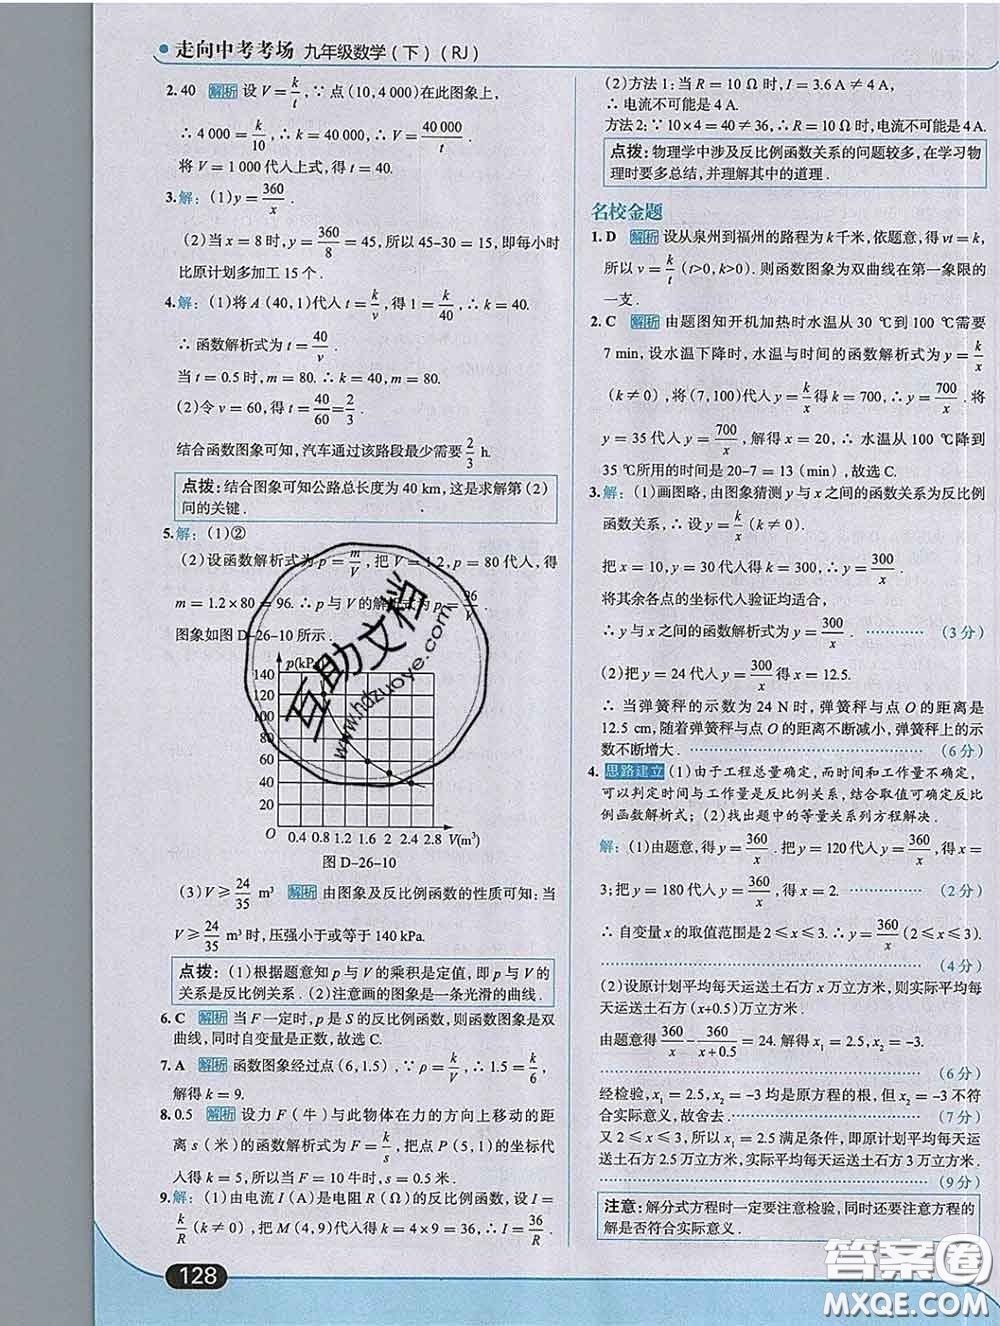 走向中考考场 九年级数学（下）（RJ）
2.40 解析 设 V = k/t, ∵ 点(10,4 000)在此图象上,
∴ 4 000 = k/10, ∴ k = 40 000, ∴ V = 40 000/t.
将 V = 1 000 代入上式, 得 t = 40.
3.解：(1)y = 360/x.
(2)当 x = 8 时, y = 360/8 = 45, 所以 45-30 = 15, 即每小时
比原计划多加工 15 个.
4.解：(1)将 A(40,1)代入 t = k/v, 得 1 = k/40, ∴ k = 40.
∴ 函数解析式为 t = 40/v.
当 t = 0.5 时, m = 80. ∴ k = 40, m = 80.
(2)令 v = 60, 得 t = 40/60 = 2/3.
结合函数图象可知, 汽车通过该路段最少需要 2/3 h.
点拨：结合图象可知公路总长度为 40 km, 这是求解第(2)
问的关键.
5.解：(1)②
(2)设函数解析式为 p = m/V, 把 V = 1.2, p = 80 代入, 得
m = 1.2×80 = 96. ∴ p 与 V 的解析式为 p = 96/V.
图象如图 D-26-10 所示.
p(kPa)
140
120
100
80
60
40
20
O 0.4 0.8 1.2 1.6 2 2.4 2.8 V(m³)
图 D-26-10
(3)V ≥ 24/35 m³ 解析 由图象及反比例函数的性质可知：当
V ≥ 24/35 m³时, 压强小于或等于 140 kPa.
点拨：(1)根据题意知 p 与 V 的乘积是定值, 即 p 与 V 的
关系是反比例关系. (2)注意画的图象是一条光滑的曲线.
6.C 解析 当 F 一定时, p 是 S 的反比例函数, 则函数图象是双
曲线, 同时自变量是正数, 故选 C.
7.A 解析 函数图象经过点(6,1.5), ∵ ρ = k/V, ∴ 1.5 = k/6,
解得 k = 9.
8.0.5 解析 设力 F(牛)与此物体在力的方向上移动的距
离 s(米)的函数解析式为 F = k/s, 把点 P(5,1)的坐标代
入得 k = 5, 所以当 F = 10 牛时, s = 0.5 米.
9.解：(1)由电流 I(A)是电阻 R(Ω)的反比例函数, 设 I =
k/R(k≠0), 把 M(4,9)代入得 k = 4×9 = 36, ∴ I = 36/R.
128
(2)方法 1：当 R = 10 Ω 时, I = 3.6 A ≠ 4 A,
∴ 电流不可能是 4 A.
方法 2：∵ 10×4 = 40 ≠ 36, ∴ R = 10 Ω 时, 电流不可能是 4 A.
点拨：物理学中涉及反比例函数关系的问题较多, 在学习物
理时要多总结, 并理解其中的道理.
名校金题
1.D 解析 设从泉州到福州的路程为 k 千米, 依题意, 得 vt = k,
所以 v = k/t (t>0, k>0). 则函数图象为双曲线在第一象限的
一支.
2.C 解析 由题图知开机加热时水温从 30 ℃到 100 ℃需要
7 min, 设水温下降时, 水温与时间的函数解析式为 y = k/x
(k≠0), 将(7,100)代入 y = k/x 得 k = 700, ∴ y = 700/x. 将
y = 35 代入 y = 700/x, 解得 x = 20, ∴ 水温从 100 ℃降到
35 ℃所用的时间是 20-7 = 13(min), 故选 C.
3.解：(1)画图略, 由图象猜测 y 与 x 之间的函数关系为反比例
函数关系, ∴ 设 y = k/x (k≠0).
把 x = 10, y = 30 代入得 k = 300, ∴ y = 300/x.
将其余各点的坐标代入验证均适合,
∴ y 与 x 之间的函数解析式为 y = 300/x. ………… (3 分)
(2)把 y = 24 代入 y = 300/x 得 x = 12.5.
∴ 当弹簧秤的示数为 24 N 时, 弹簧秤与点 O 的距离是
12.5 cm, 随着弹簧秤与点 O 的距离不断减小, 弹簧秤上的示
数不断增大. ………… (6 分)
4. 思路建立 (1)由于工程总量确定, 而时间和工作量不确定,
可以判定时间与工作量是反比例关系, 结合取值可确定反比
例函数解析式; (2)找出题中的等量关系列方程解决.
解：(1)由题意, 得 y = 360/x. 把 y = 120 代入 y = 360/x, 得 x =
3; 把 y = 180 代入 y = 360/x, 得 x = 2. ………… (2 分)
∴ 自变量 x 的取值范围是 2 ≤ x ≤ 3. ∴ y = 360/x (2 ≤ x ≤ 3).
………… (4 分)
(2)设原计划平均每天运送土石方 x 万立方米, 则实际平均每
天运送土石方(x+0.5)万立方米.
由题意得 360/x - 360/(x+0.5) = 24. 解得 x₁ = 2.5, x₂ = -3.
………… (6 分)
经检验, x₁ = 2.5, x₂ = -3 均是原方程的根, 但 x₂ = -3 不符
合实际意义, 故舍去. ………… (7 分)
又 2 ≤ x ≤ 3, 所以 x₁ = 2.5 满足条件, 即原计划平均每天运
送土石方 2.5 万立方米, 实际平均每天运送土石方 3 万立方米.
………… (9 分)
注意：解分式方程时一定要注意检验, 同时还要注意方程的
解是否符合实际意义.
互助文档
www.hdzuoye.com
答案圈
MXQE.COM